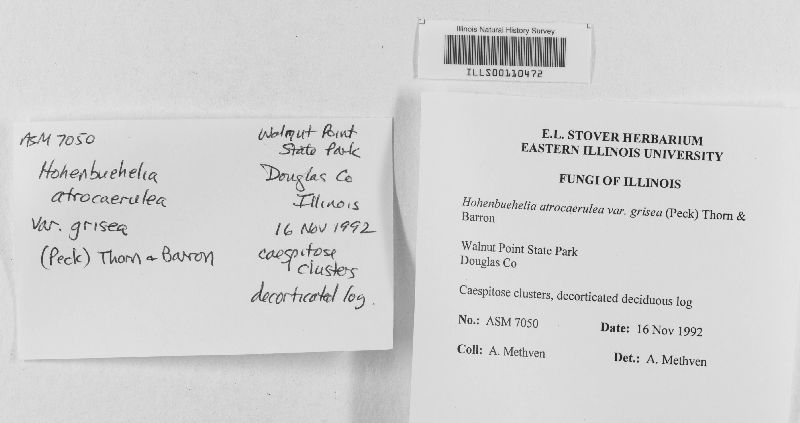 Illinois Natural History Survey
ILLS00110472
ASM 7050
Hohenbuehelia
atrocaerulea
var. grisea
(Peck) Thorn & Barron
Walnut Point
State Park
Douglas Co
Illinois
16 Nov 1992
caespitose
clusters
decorticated log.
E.L. STOVER HERBARIUM
EASTERN ILLINOIS UNIVERSITY
FUNGI OF ILLINOIS
Hohenbuehelia atrocaerulea var. grisea (Peck) Thorn &
Barron
Walnut Point State Park
Douglas Co
Caespitose clusters, decorticated deciduous log
No.: ASM 7050 Date: 16 Nov 1992
Coll: A. Methven Det.: A. Methven